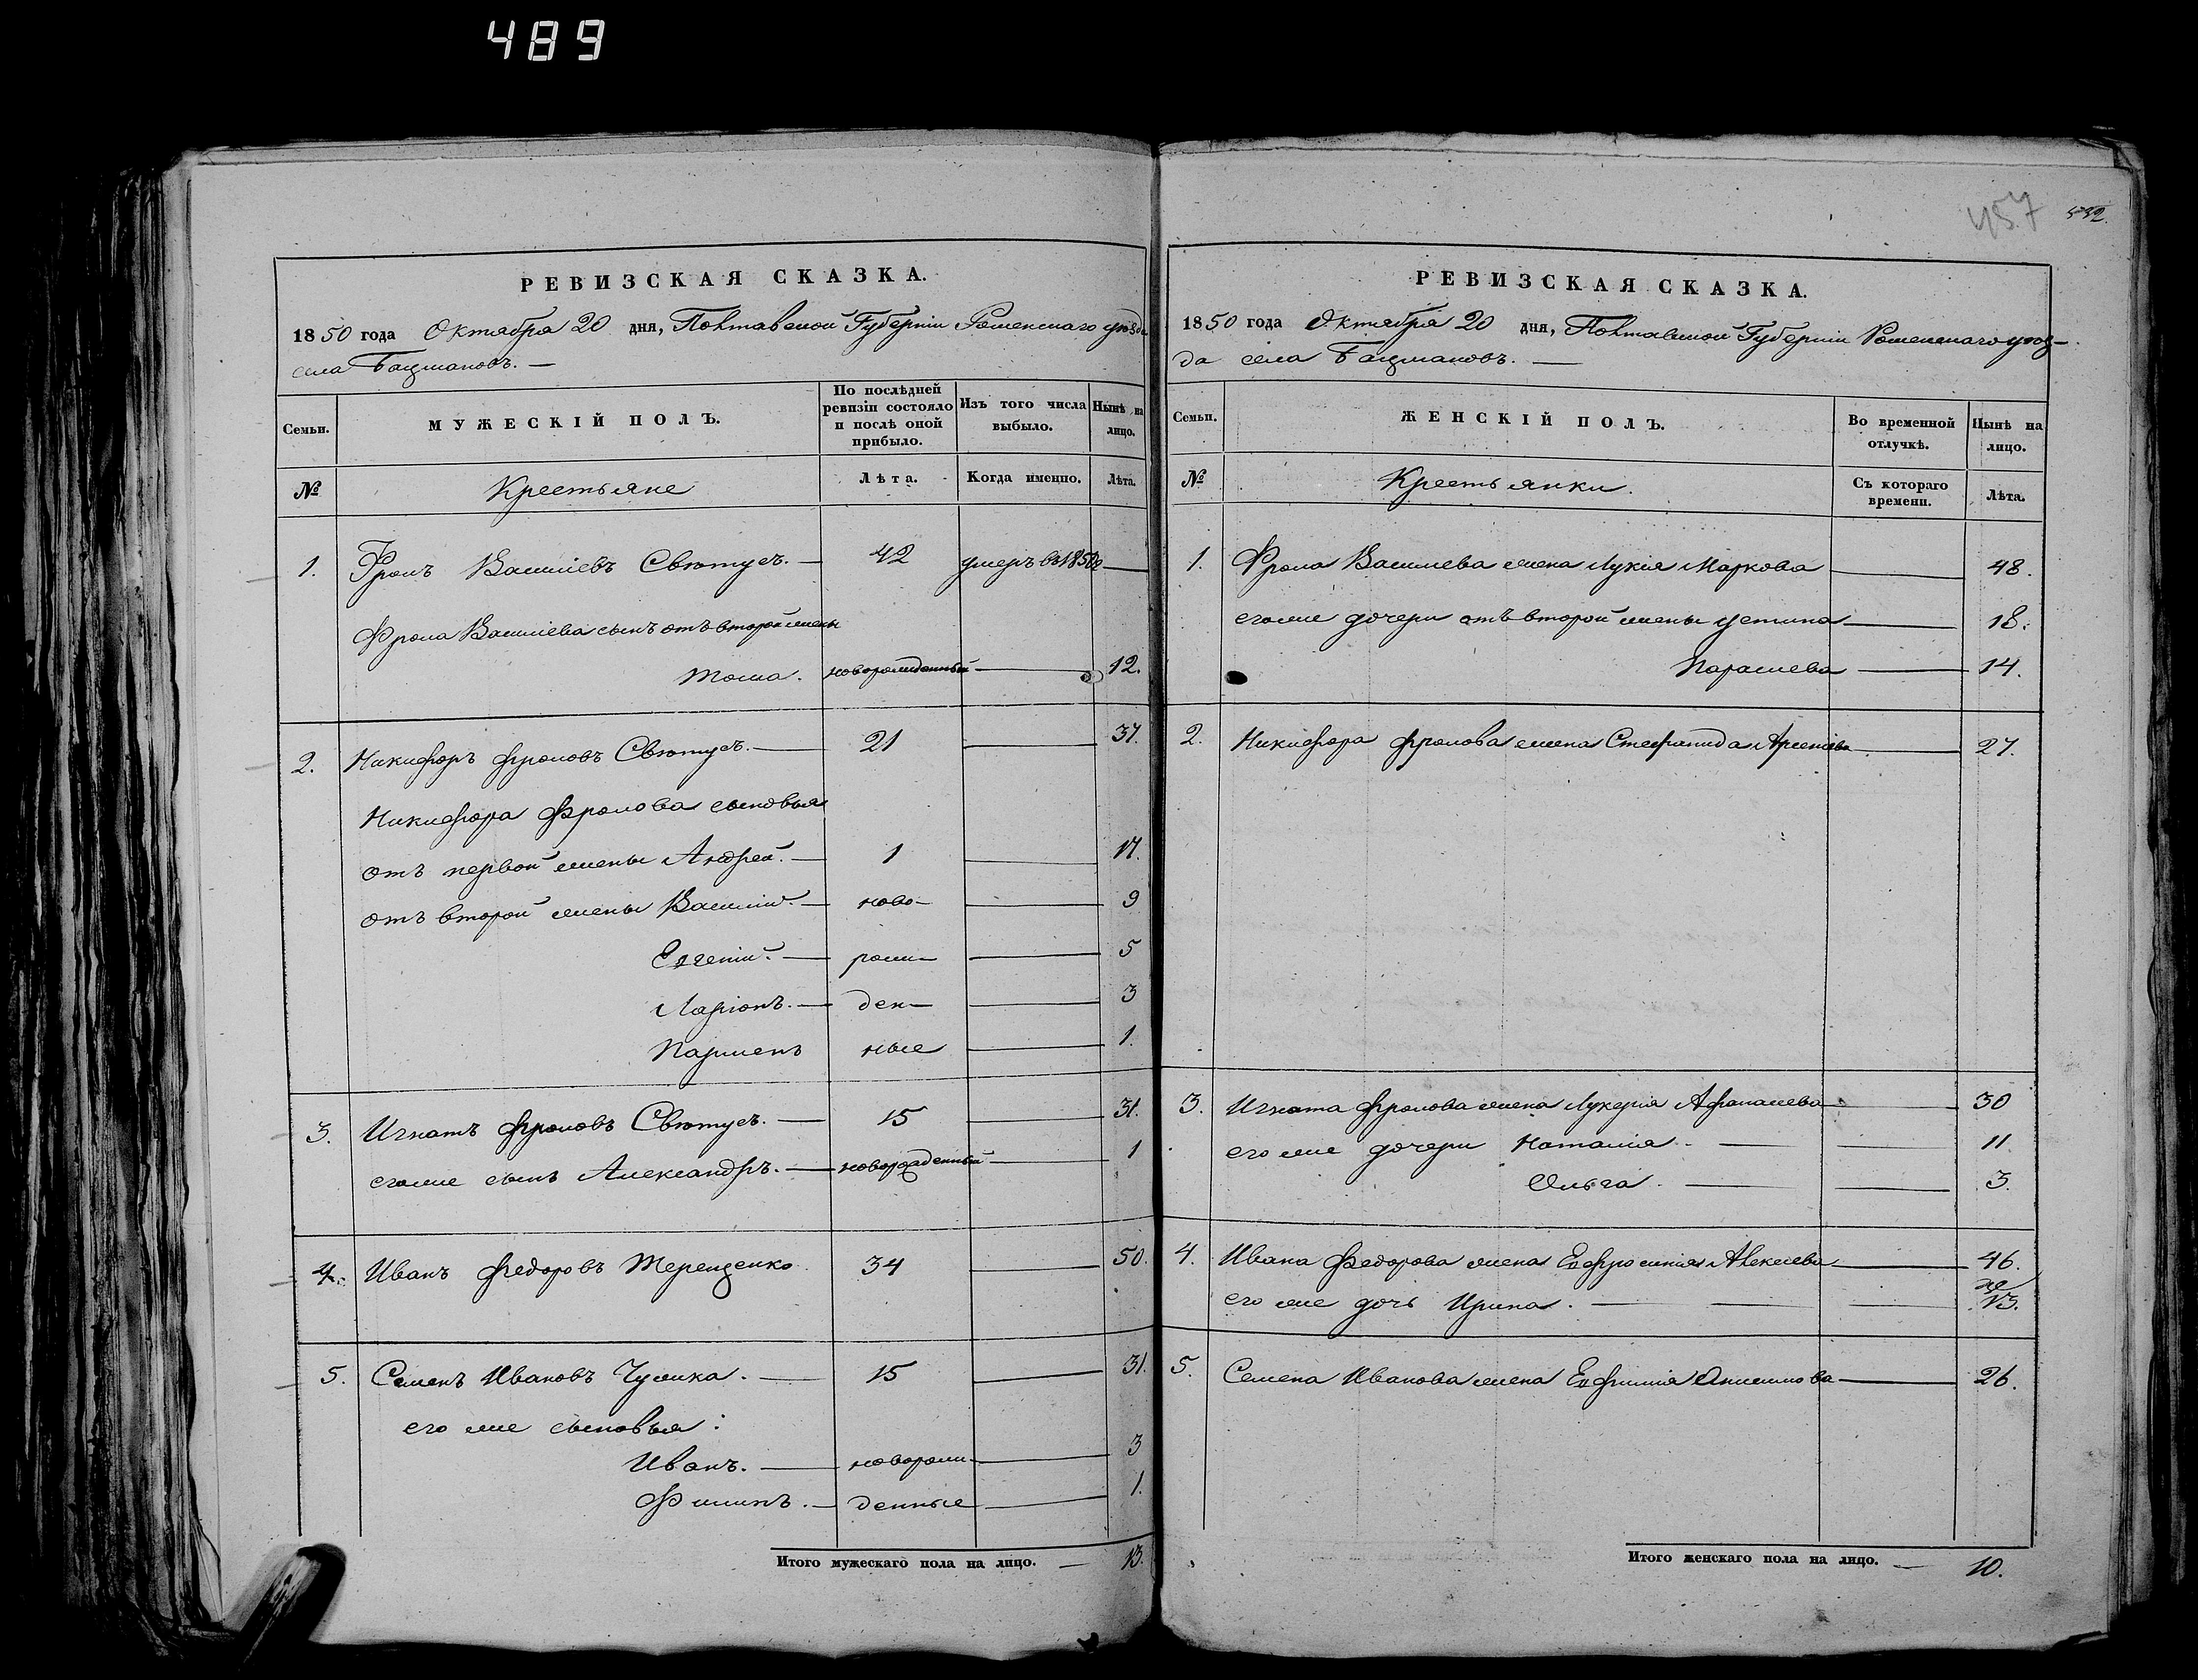 489
457
532.
РЕВИЗСКАЯ СКАЗКА.
1850 года Октября 20 дня, Полтавской Губерніи Роменскаго уѣзда
села Бацмановъ. —
Семьи. МУЖЕСКІЙ ПОЛЪ. По послѣдней ревизіи состояло и послѣ оной прибыло. Изъ того числа выбыло. Нынѣ на лицо.
№ Крестьяне Лѣта. Когда именно. Лѣта.
1. Фролъ Василіевъ Святусъ. — 42 умеръ въ 1850 —
Фрола Василіева сынъ отъ второй жены
Тома. новорожденный — 12.
2. Никифоръ Фроловъ Святусъ. — 21 — 37.
Никифора Фролова сыновья
отъ первой жены Андрей. — 1 — 17.
отъ второй жены Василій. — ново- — 9
Евгеній. — рож- — 5
Ларіонъ. — ден- — 3
Парменъ ные — 1.
3. Игнатъ Фроловъ Святусъ. — 15 — 31.
егоже сынъ Александръ. — новорожденный — 1
4. Иванъ Федоровъ Терещенко 34 — 50.
5. Семенъ Ивановъ Чумика. — 15 — 31.
его же сыновья:
Иванъ. — новорож- — 3
Филипъ. — денные — 1.
Итого мужескаго пола на лицо. — 13.
РЕВИЗСКАЯ СКАЗКА.
1850 года Октября 20 дня, Полтавской Губерніи Роменскаго уѣз-
да села Бацмановъ. —
Семьи. ЖЕНСКІЙ ПОЛЪ. Во временной отлучкѣ. Нынѣ на лицо.
№ Крестьянки. Съ котораго времени. Лѣта.
1. Фрола Василиева жена Лукія Маркова — 48.
егоже дочери отъ второй жены Устина — 18.
Парасіева — 14.
2. Никифора Фролова жена Стефанида Арсеніева — 27.
3. Игната Фролова жена Лукерія Афанасиева — 30
его же дочери Наталія. — — 11
Ольга. — — 3.
4. Ивана Федорова жена Евфросинія Алексиева — 46.
его же дочь Ирина. — — — 13.
5. Семена Иванова жена Евфимія Онисимова — 26.
Итого женскаго пола на лицо. — 10.